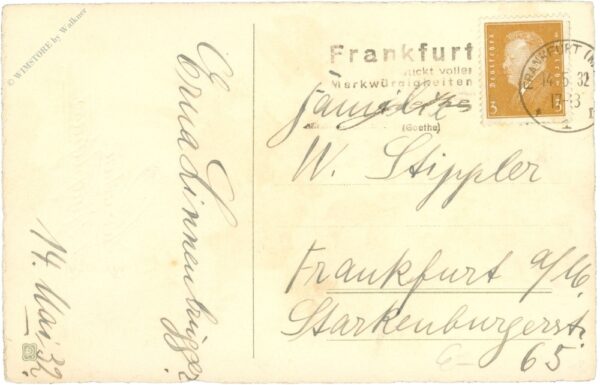 © WIMSTORE by Walkner
Erna Linnenbrügger
14. Mai 32.
Frankfurt
steckt voller
Merkwürdigkeiten
(Goethe)
Deutsches Reich
3 3
FRANKFURT (M
14.5.32
17-18
1
Familie
W. Stippler
Frankfurt a/M.
Starkenburgerstr.
65